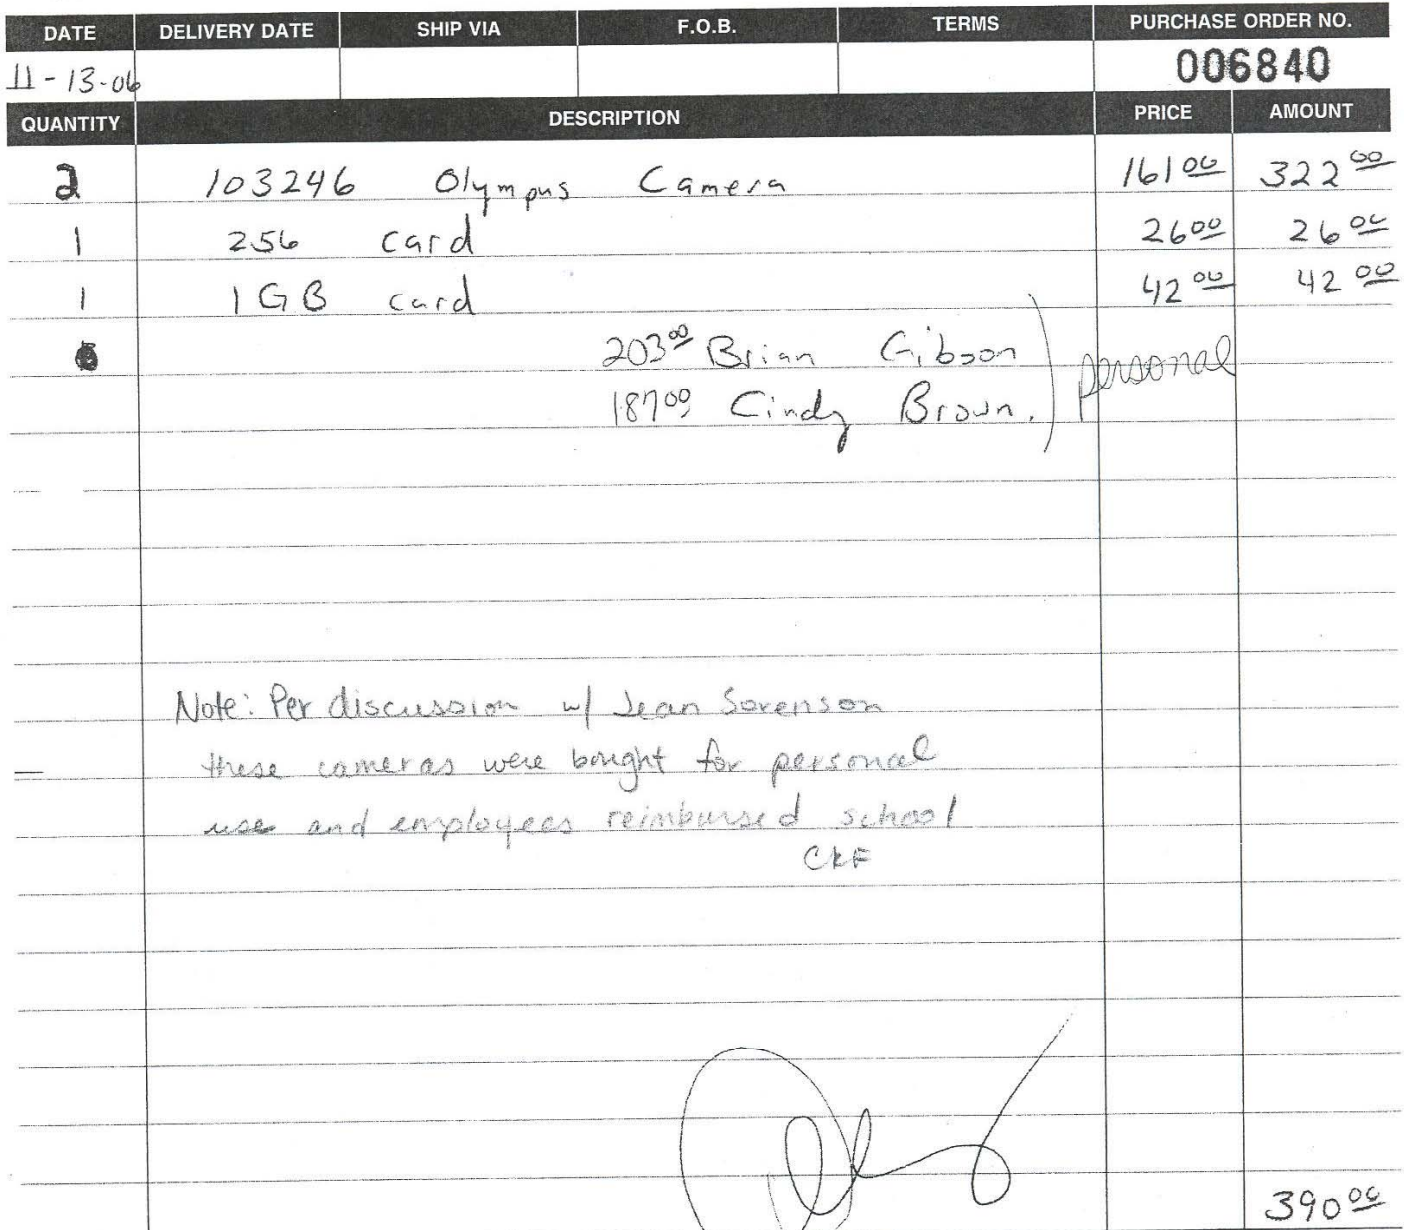 DATE DELIVERY DATE SHIP VIA F.O.B. TERMS PURCHASE ORDER NO.
11-13-06 006840
QUANTITY DESCRIPTION PRICE AMOUNT
2 103246 Olympus Camera 161 00 322 00
1 256 card 26 00 26 00
1 1GB card 42 00 42 00
203 00 Brian Gibson
personal
187 00 Cindy Brown.
Note: Per discussion w/ Jean Sorenson
these cameras were bought for personal
use and employees reimbursed school
CKF
390 00